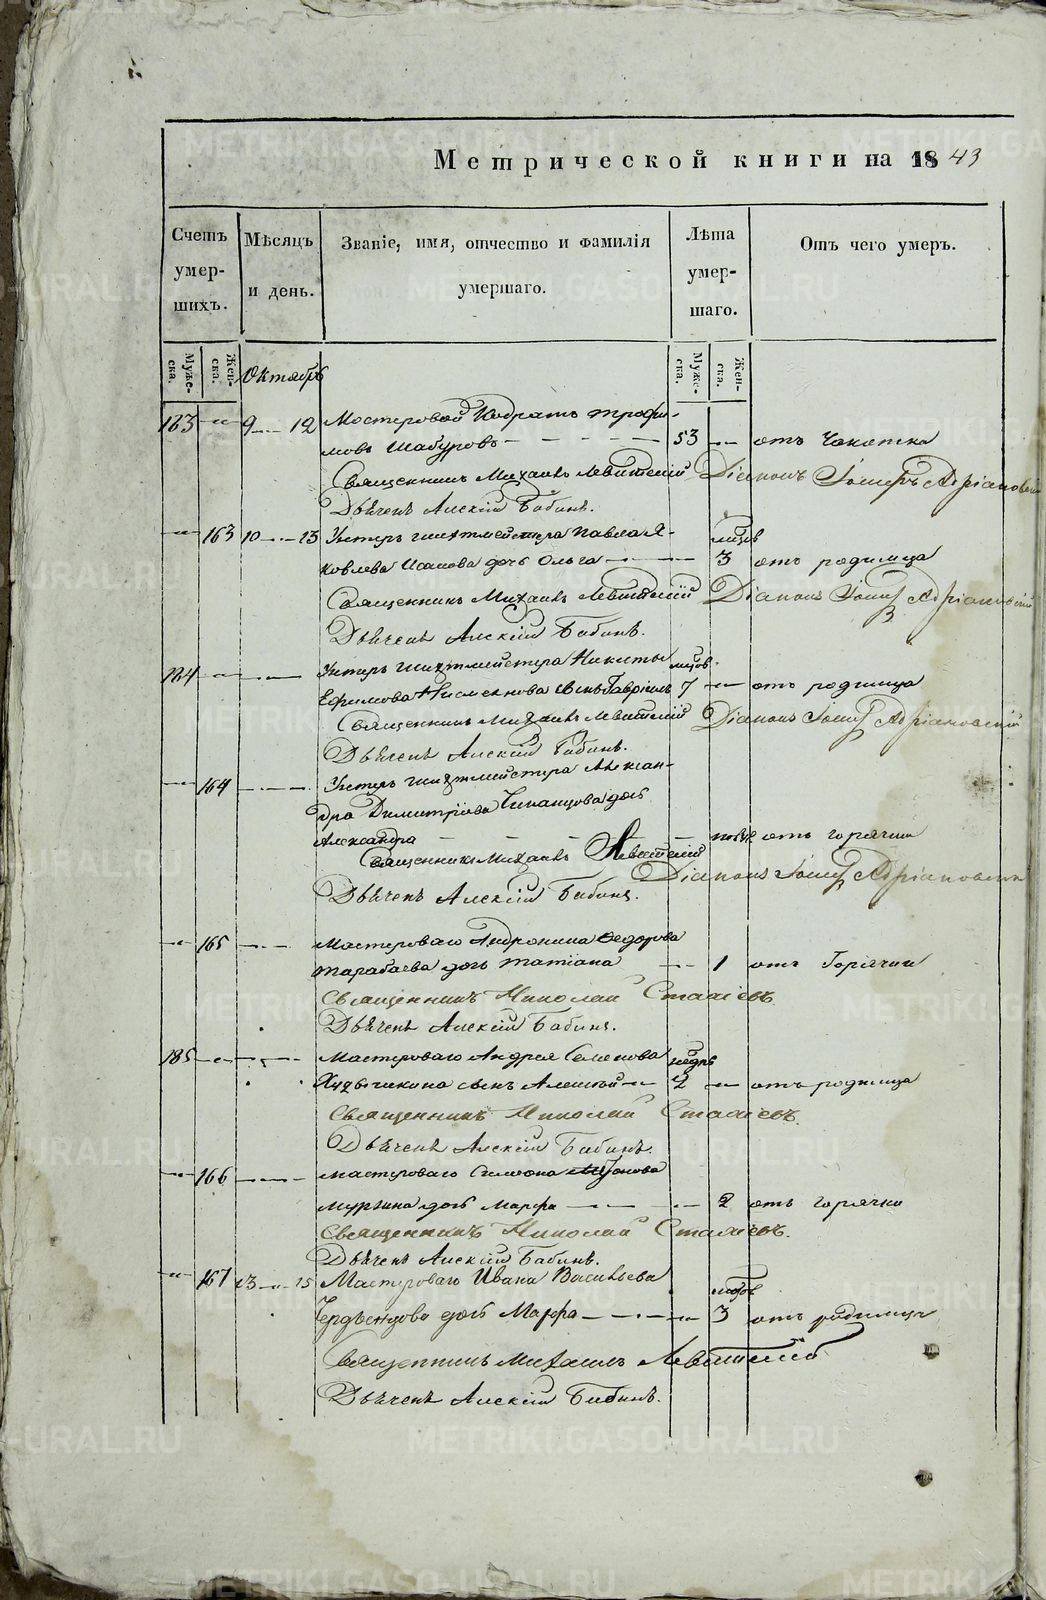 Метрической книги на 1843
Счетъ умер- шихъ.
Мѣсяцъ и день.
Званіе, имя, отчество и фамилія умершаго.
Лѣта умер- шаго.
Отъ чего умеръ.
Муже- ска. Жен- ска. Октябрь Муже- ска. Жен- ска.
183 — 9 — 12 Мастеровой Кодратъ Трофи-
мовъ Шабуровъ — 53 — отъ Чахотки
Священникъ Михаилъ Левитскій Діаконъ Іосифъ Адріановскій
Дьячекъ Алексій Бабинъ.
— 163 10 — 13 Унтеръ шихтмейстера Павла Я-
ковлева Исакова дочь Ольга — 3 отъ родимца
Священникъ Михаилъ Левитскій Діаконъ Іосифъ Адріановскій
Дьячекъ Алексій Бабинъ.
184 — Унтеръ шихтмейстера Никиты
Ефимова сынъ Гавріилъ 7 — отъ родимца
Священникъ Михаилъ Левитскій Діаконъ Іосифъ Адріановскій
Дьячекъ Алексій Бабинъ.
— 164 — Унтеръ шихтмейстера Алексан-
дра Димитріева дочь
Александра — отъ горячки
Священникъ Михаилъ Левитскій
Діаконъ Іосифъ Адріановскій
Дьячекъ Алексій Бабинъ.
— 165 — Мастероваго Андроника Федорова
Тарабаева дочь Татіана — 1 отъ Горячки
Священникъ Николай
Дьячекъ Алексій Бабинъ.
185 — Мастероваго Андрея Семенова
сынъ Алексѣй — 2 — отъ родимца
Священникъ Николай
Дьячекъ Алексій Бабинъ.
— 166 — Мастероваго Симеона
Мурзина дочь Марфа — 2 отъ горячки
Священникъ Николай
Дьячекъ Алексій Бабинъ.
— 167 13 — 15 Мастероваго Ивана Васильева
дочь Марфа — 3 отъ родимца
Священникъ Михаилъ Левитскій
Дьячекъ Алексій Бабинъ.
METRIKI.GASO-URAL.RU